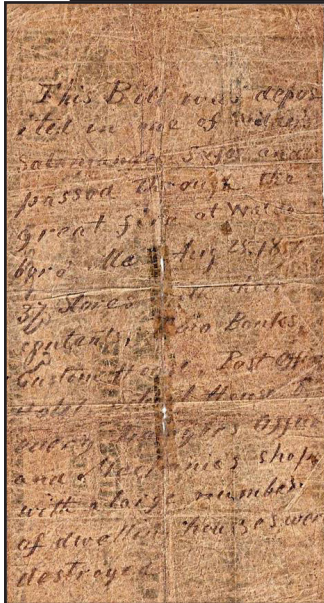 This Bill was depos
ited in one of Wilder's
Salamander Safes and
passed through the
great fire at Waldo
boro Me Aug 25. 1854
37 Stores with their
contents, Two Banks,
Custom House, Post Office
Hotel School House
every
and Mechanics shops
with a large number
of dwelling houses were
destroyed